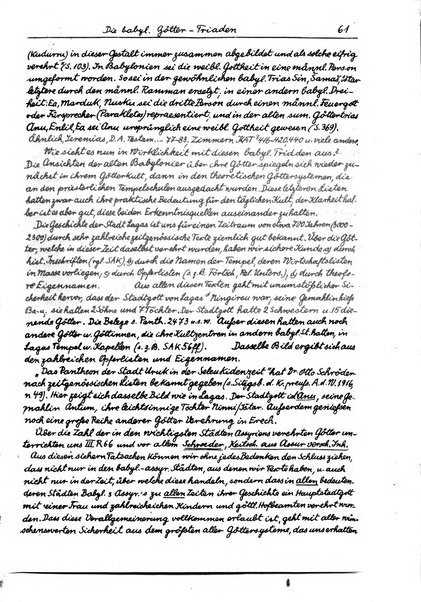 Die babyl. Götter-Triaden 61
(Kudurru) in dieser Gestalt immer zusammen abgebildet und als solche eifrig
verehrt (S. 109). In Babylonien sei die weibl. Gottheit in eine männl. Person
umgeformt worden. So sei in der gewöhnlichen babyl. Trias Sin, Šamaš, Ištar
letztere durch den männl. Ramman ersetzt, in einer andern babyl. Drei-
heit: Ea, Marduk, Nusku sei die dritte Person durch einen männl. Feuergott
oder Fürsprecher (Paraklete) repräsentiert, und in der alten sum. Göttertrias
Anu, Enlil, Ea sei Anu ursprünglich eine weibl. Gottheit gewesen (S. 369).
Ähnlich Jeremias, D.A. Testam. 77-83. Zimmern KAT 418-420,440 u. viele andere.
Wie sieht es nun in Wirklichkeit mit diesen babyl. Triaden aus?
Die Ansichten der alten Babylonier über ihre Götter spiegeln sich wieder zu-
nächst in ihrem Götterkult, dann in den theoretischen Göttersystemen, die
an den priesterlichen Tempelschulen ausgedacht wurden. Diese letzteren Listen
hatten zwar auch ihre praktische Bedeutung für den täglichen Kult, der Klarheit hal-
ber ist es aber gut, diese beiden Erkenntnisquellen auseinander zu halten.
Die Geschichte der Stadt Lagaš ist uns für einen Zeitraum von etwa 700 Jahren (3000-
2300) durch sehr zahlreiche zeitgenössische Texte ziemlich gut bekannt. Über die Göt-
ter, welche in dieser Zeit dort verehrt wurden, haben wir sichere Kunde, durch
hist. Inschriften (vgl SAK) durch die Namen der Tempel, deren Wirtschaftslisten
in Masse vorliegen, durch Opferlisten (z.B. Förtsch, Rel. Unters.), durch theofo-
re Eigennamen. Aus allen diesen Texten geht mit unumstößlicher Si-
cherheit hervor, dass der Stadtgott von Lagaš Ningirsu war, seine Gemahlin hieß
Ba-u, sie hatten 2 Söhne und 7 Töchter. Der Stadtgott hatte 2 Schwestern u. 15 die-
nende Götter. Die Belege s. Panth. 2473 u.s.w. Außer diesen hatten auch noch
andere Götter u. Göttinnen, die ihre Kultzentren in andern babyl. St. hatten, in
Lagaš Tempel u. Kapellen (s. z.B. SAK 56ff). Dasselbe Bild ergibt sich aus
den zahlreichen Opferlisten und Eigennamen.
„Das Pantheon der Stadt Uruk in der Seleukidenzeit" hat Dr. Otto Schröder
nach zeitgenössischen Listen bekannt gegeben (s. Sitzgsb. d. K. preuß. A.d.W. 1916,
n 49). Hier zeigt sich dasselbe Bild wie in Lagaš. Der Stadtgott ist Anu, seine Ge-
mahlin Antum, ihre leichtsinnige Tochter Ninni/Ištar. Außerdem genießen
noch eine große Reihe anderer Götter Verehrung in Erech.
Über die Zahl der in den wichtigsten Städten Assyriens verehrten Götter un-
terrichten uns III R 66 und vor allem Schroeder, Keilsch. aus Assur versch. Inh.
Aus diesen sichern Tatsachen können wir ohne jedes Bedenken den Schluss ziehen,
dass nicht nur in den babyl.-assyr. Städten, aus denen wir Texte haben, u. auch
nicht nur in der Zeit, über welche diese handeln, sondern dass in allen bedeuten-
deren Städten Babyl. & Assyr.s zu allen Zeiten ihrer Geschichte ein Hauptstadtgott
mit einer Frau und zahlreicheichen Kindern und göttl. Hofbeamten verehrt wur-
den. Dass diese Verallgemeinerung vollkommen erlaubt ist, geht mit aller wün-
schenswerten Sicherheit aus dem größten aller Göttersysteme, das uns erhalten